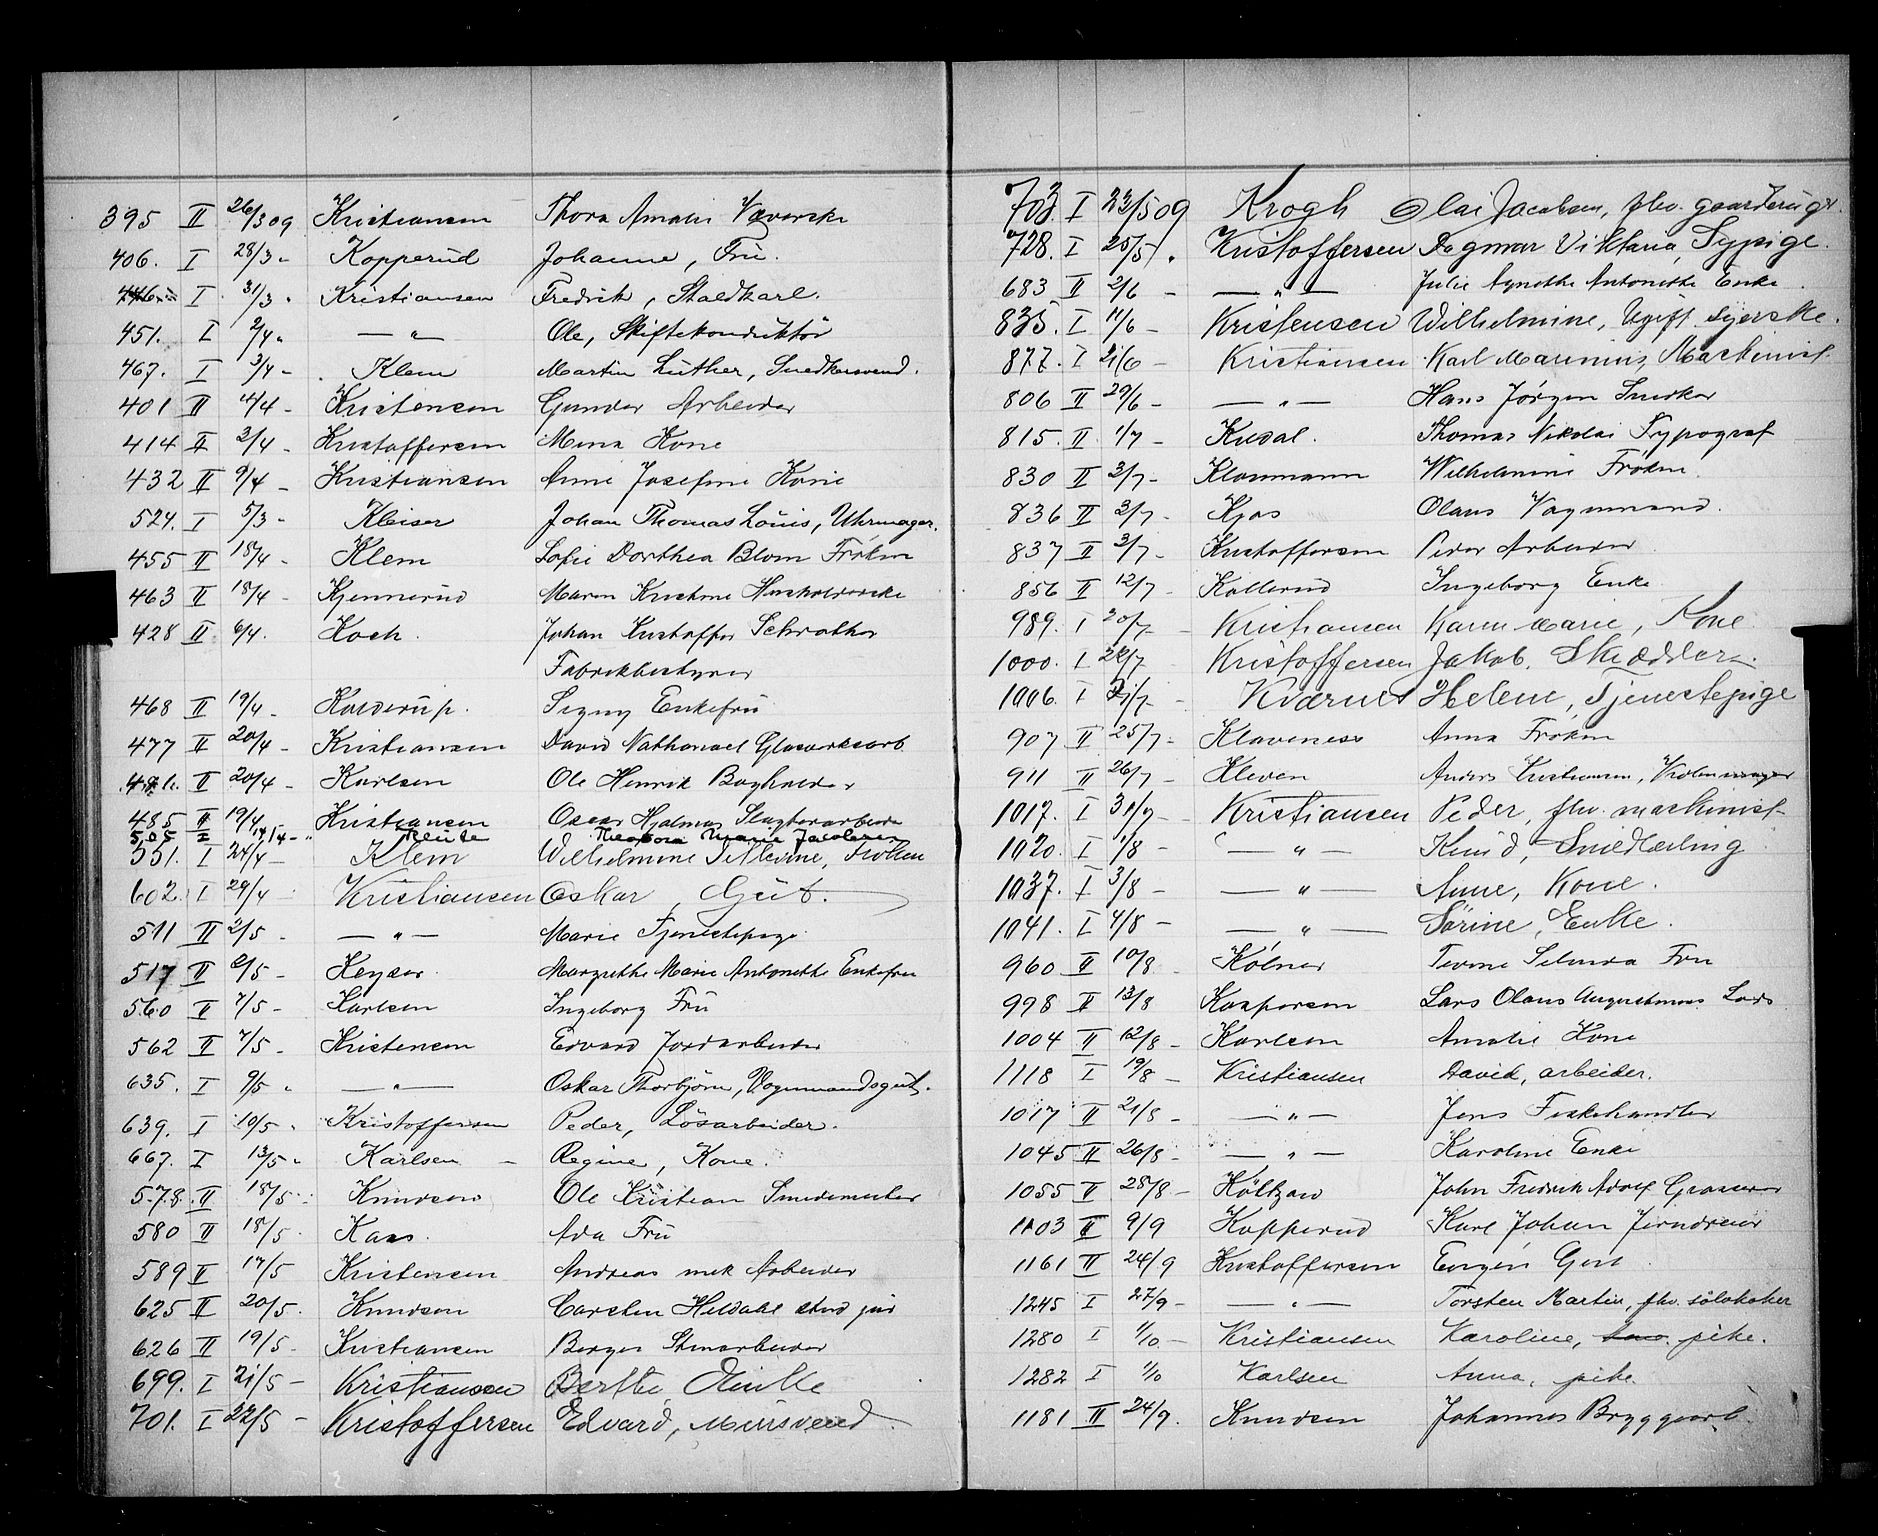 395 II 26/3 09 Kristiansen Thora Amalie Væverske
406. I 28/3 " Kopperud Johanne, Fru.
I 31/3 " Kristiansen Fredrik, Staldkarl.
451. I 2/4 " — " — Ole, Skiftekonduktør
467. I 3/4 - Klem Martin Luther, Snedkersvend.
401 II 1/4 - Kristensen Gunder Arbeider
414 II 2/4 - Kristoffersen Mina Kone
432 II 9/4 - Kristiansen Anne Josefine Kone
524. I 5/3 - Kleiser Johan Thomas Louis, Uhrmager.
455 II 15/4 - Klem Sofie Dorthea Blom Frøken
463 II 18/4 - Kjennerud Maren Kristine Husholderske
428 II 6/4. Koch. Johan Kristoffer Schrøther
Fabrikbestyrer
468 II 19/4 - Kolderup. Signy Enkefru
477 II 20/4 - Kristiansen David Nathanael Glasverksarb
II 20/4 - Karlsen Ole Henrik Bogholder
485 II 19/4 Kristiansen Oscar Hjalmar Slagterarbeide
505 I 14/4 - " Theodora Marie Jacobsen
551. I 24/4 - Klem Wilhelmine Frøken
602. I 29/4 - Kristiansen Oskar, Gut.
511 II 2/5 - — " — Marie Tjenestepige
517 II 2/5 - Keyser Margrethe Marie Antonette Enkefru
560 II 7/5 - Karlsen Ingeborg Fru
562 II 7/5 - Kristensen Edvard Jordarbeider
635. I 9/5 " — " — Oskar Thorbjørn, Vognmandsgut.
639. I 10/5 " Kristoffersen Peder, Løsarbeider.
667. I 13/5 " Karlsen - Regine, Kone.
578. II 15/5 - Knudsen Ole Kristian Smedemester
580 II 15/5 - Kaas. Ada Fru
589 II 17/5 Kristensen Andreas mek Arbeider
625 II 20/5. Knudsen Carsten Heldahl stud jur
626 II 19/5 - Kristiansen Borger Stenarbeider
699. I 21/5 - Kristiansen Berthe Enke
701. I 22/5 - Kristoffersen Edvard, Mursvend
703. I 23/5 09 Krogh Olai Jacobsen, fhv. gaardbrugr.
728. I 25/5 " Kristoffersen Dagmar Viktoria, Sypige.
683 II 2/6 - — " — Julie Agnethe Antonette Enke
835. I 11/6 - Kristensen Wilhelmine, Ugift syerske.
877. I 21/6 - Kristiansen Karl Marinius, Maskinist
806 II 29/6 - — " — Hans Jørgen Snedker
815. II. 1/7 - Kusal. Thomas Nikolai Typograf
830 II 2/7 - Klanmann Wilhelmine Frøken
836 II 3/7 - Kjos Olaus Vognmand.
837 II 3/7 - Kristoffersen Peder Arbeider
856 II 12/7 - Kollerud Ingeborg Enke
989. I 20/7 - Kristiansen Karen Marie, Kone
1000. I 22/7 Kristoffersen Jakob. Skrædder.
1006. I 21/7 - Kværner Helene, Tjenestepige
907 II 25/7 - Klaveness Anna Frøken
911 II 26/7 - Kleven Anders Kristiansen,
1017. I 31/7 - Kristiansen Peder, fhv. maskinist
1020. I 1/8 - — " — Knud, Smedlærling
1037. I 3/8 - — " — Anne, Kone.
1041. I 4/8 - — " — Sørine, Enke.
960 II 10/8 - Kølner Selinda Fru
998 II 13/8 Kaspersen Lars Olaus Augustinus Lods
1004 II 12/8 - Karlsen Amalie Kone
1118 I 19/8 - Kristiansen David, arbeider.
1017 II 21/8 - — " — Jens Fiskehandler
1045 II 26/8 - — " — Karoline Enke
1055 II 28/8 - Høltzau John Fredrik Adolf Graverer
1103 II 9/9 Kopperud Karl Johan Jerndreier
1161 II 24/9 Kristoffersen Eugen Gut
1245 I 27/9 - — " — Torsten Martin, fhv.
1280 I 1/10 - Kristiansen Karoline, pike.
1282 I 1/10 Karlsen Anna, pike
1181 II 24/9. Knudsen Johannes Bryggearb.